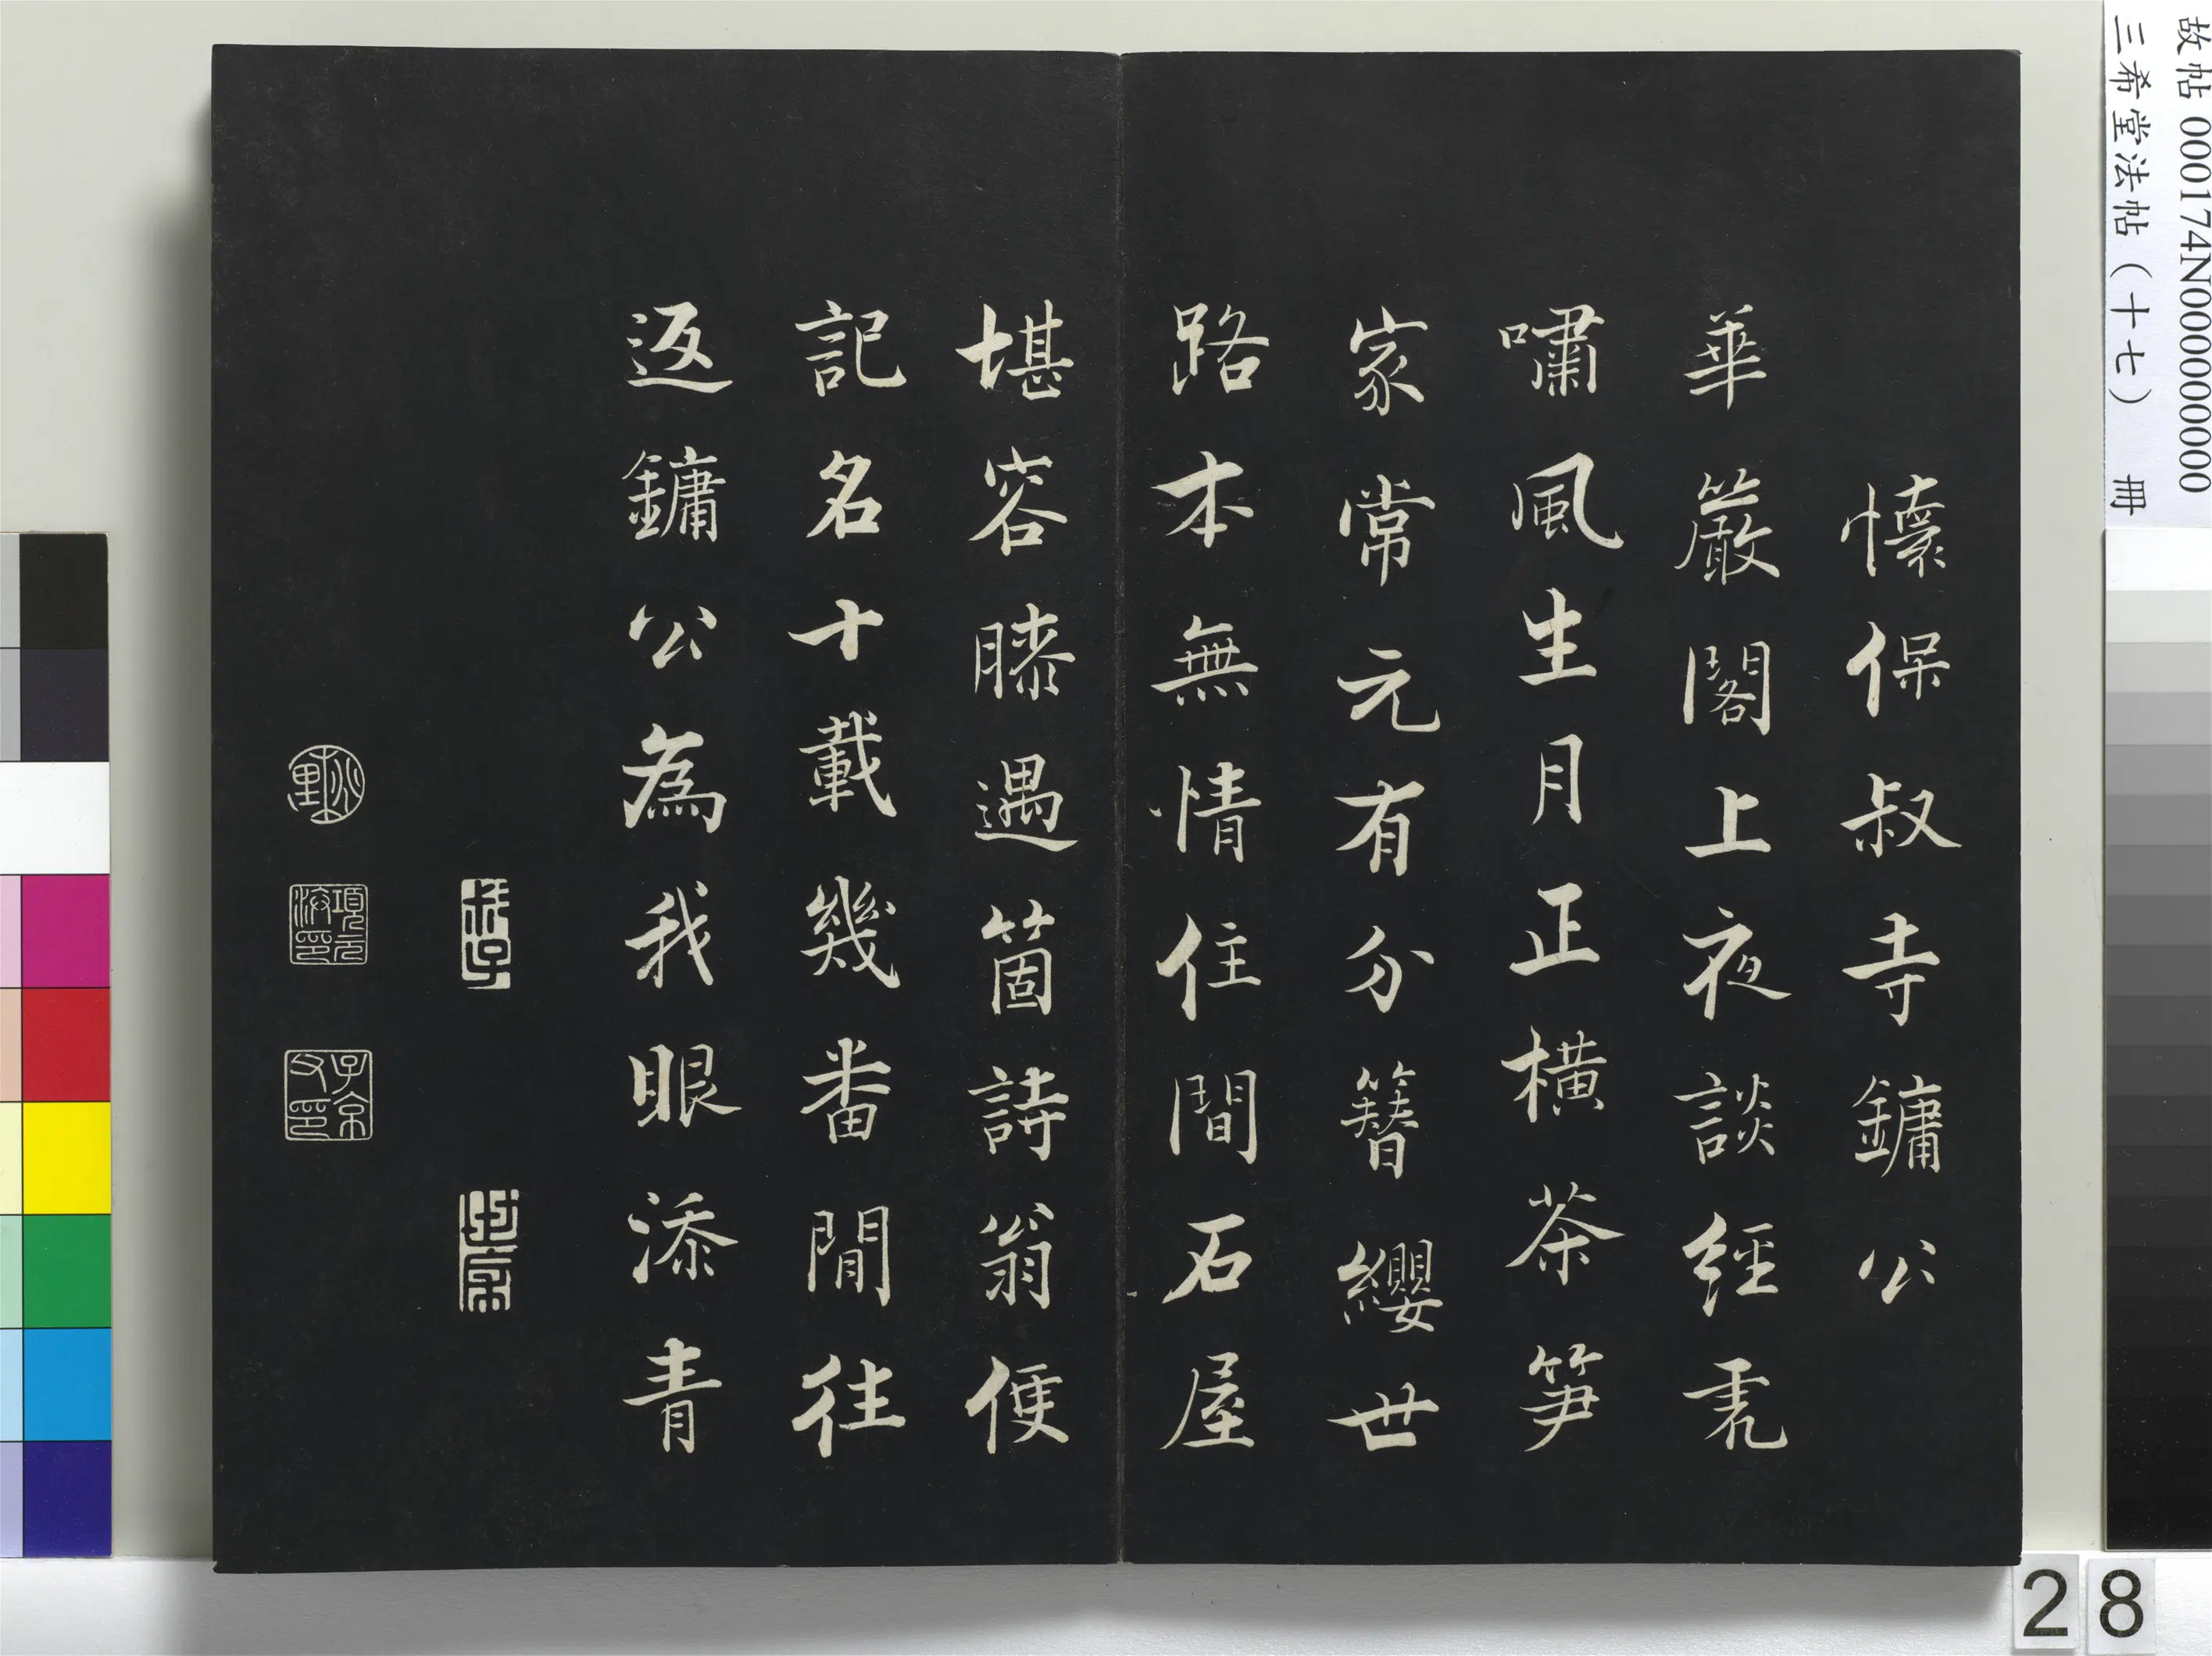 故帖 000174N000000000
三希堂法帖（十七） 冊
懐保叔寺鏞公
華巖閣上夜談經虎
嘯風生月正橫茶笋
家常元有分簪纓世
路本無情住間石屋
堪容膝遇箇詩翁便
記名十載幾番閒往
返鏞公為我眼添青
項元汴印
子京父印
28